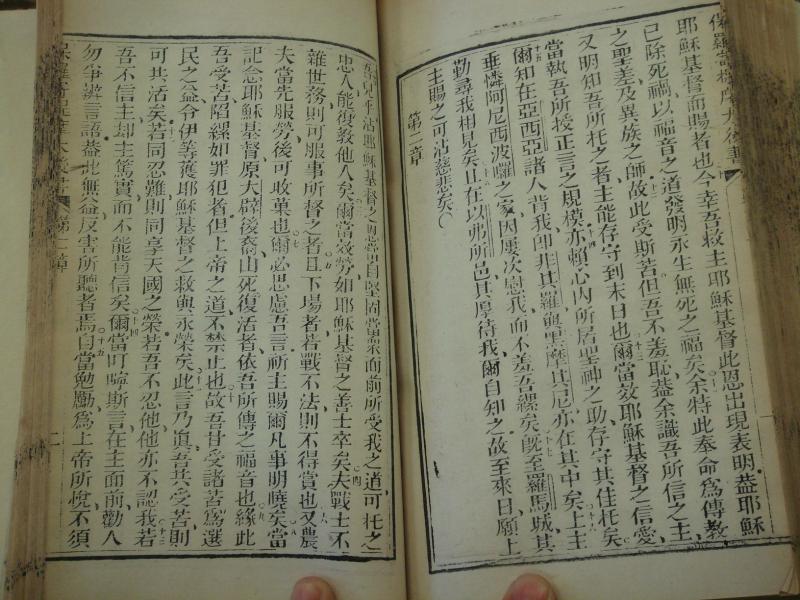 保羅寄提摩太後書
耶穌基督而賜者也今幸吾救主耶穌基督此恩出現表明蓋耶穌
已除死禍以福音之道發明永生無死之福矣余特此奉命爲傳教
之聖差及異族之師故此受斯苦但吾不羞恥蓋余識吾所信之主
又明知吾所托之者主能存守到末日也爾當效耶穌基督之信愛
當執吾所授正言之規模亦賴心內所居聖神之助存守其住托矣
爾知在亞西亞諸人背我卽非其羅與黑摩其尼亦在其中矣上主
垂憐阿尼西波囉之家因屢次慰我而不羞吾縲矣旣至羅馬城其
勤尋我相見矣且在以弗所邑其厚待我爾自知之故至來日願上
主賜之可沾慈悲矣
第二章
吾兒乎沾耶穌基督之恩當自堅固當衆面前所受我之道可托之
忠人能復教他人矣爾當效勞如耶穌基督之善士卒矣夫戰士不
雜世務則可服事所督之者且下場者若戰不法則不得賞也又農
夫當先服勞後可收菓也爾必思慮吾言祈主賜爾凡事明曉矣當
記念耶穌基督原大辟後裔由死復活者依吾所傳之福音也緣此
吾受苦陷縲如罪犯者但上帝之道不禁止也故吾甘受諸苦爲選
民之益令伊等獲耶穌基督之救與永榮矣此言乃眞吾共受苦則
可共活矣若同忍難則同享天國之榮若吾不忍他他亦不認我若
吾不信主却主篤實而不能背信矣爾當叮嚀斯言在主面前勸人
勿爭辯言語蓋此無益反害所聽者焉自當勉勵爲上帝所悅不須
第二章 二